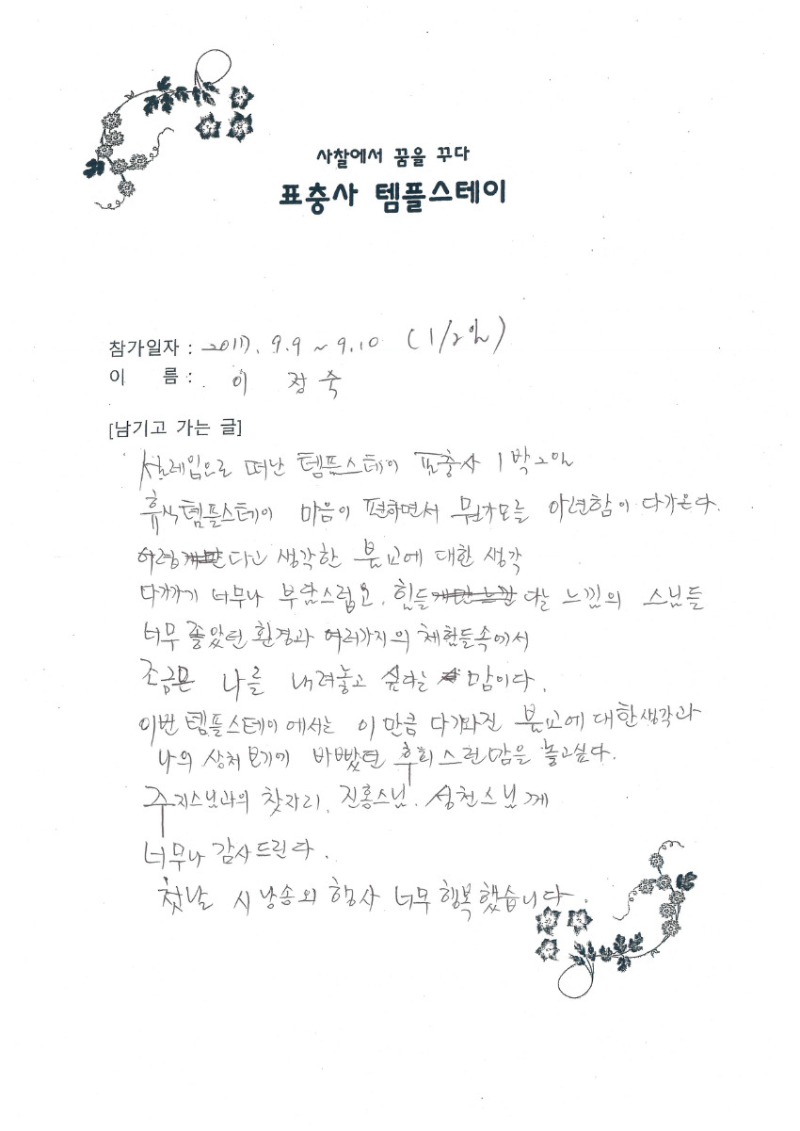 사찰에서 꿈을 꾸다
표충사 템플스테이
참가일자 : 2017. 9.9 ~ 9.10 (1/2일)
이 름 : 이 장 숙
[남기고 가는 글]
설레임으로 떠난 템플스테이 표충사 1박2일
휴식템플스테이 마음이 편하면서 뭔가모를 아련함이 다가온다.
다고 생각한 불교에 대한 생각
너무나 부담스럽고, 힘들 다는 느낌의 스님들
너무 좋았던 환경과 여러가지의 체험들속에서
조금은 나를 내려놓고 싶다는 맘이다.
이번 템플스테이에서는 이만큼 다가와진 불교에 대한생각과
나의 상처 보기에 바빴던 후회스런맘을 놓고싶다.
주지스님과의 찻자리, 진홍스님, 성천스님께
너무나 감사드린다.
첫날 시낭송의 행사 너무 행복했습니다.